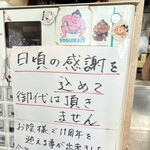 日頃の感謝を
込めて
御代は頂き
ません
お陰様で11周年
迎える事が出来ました